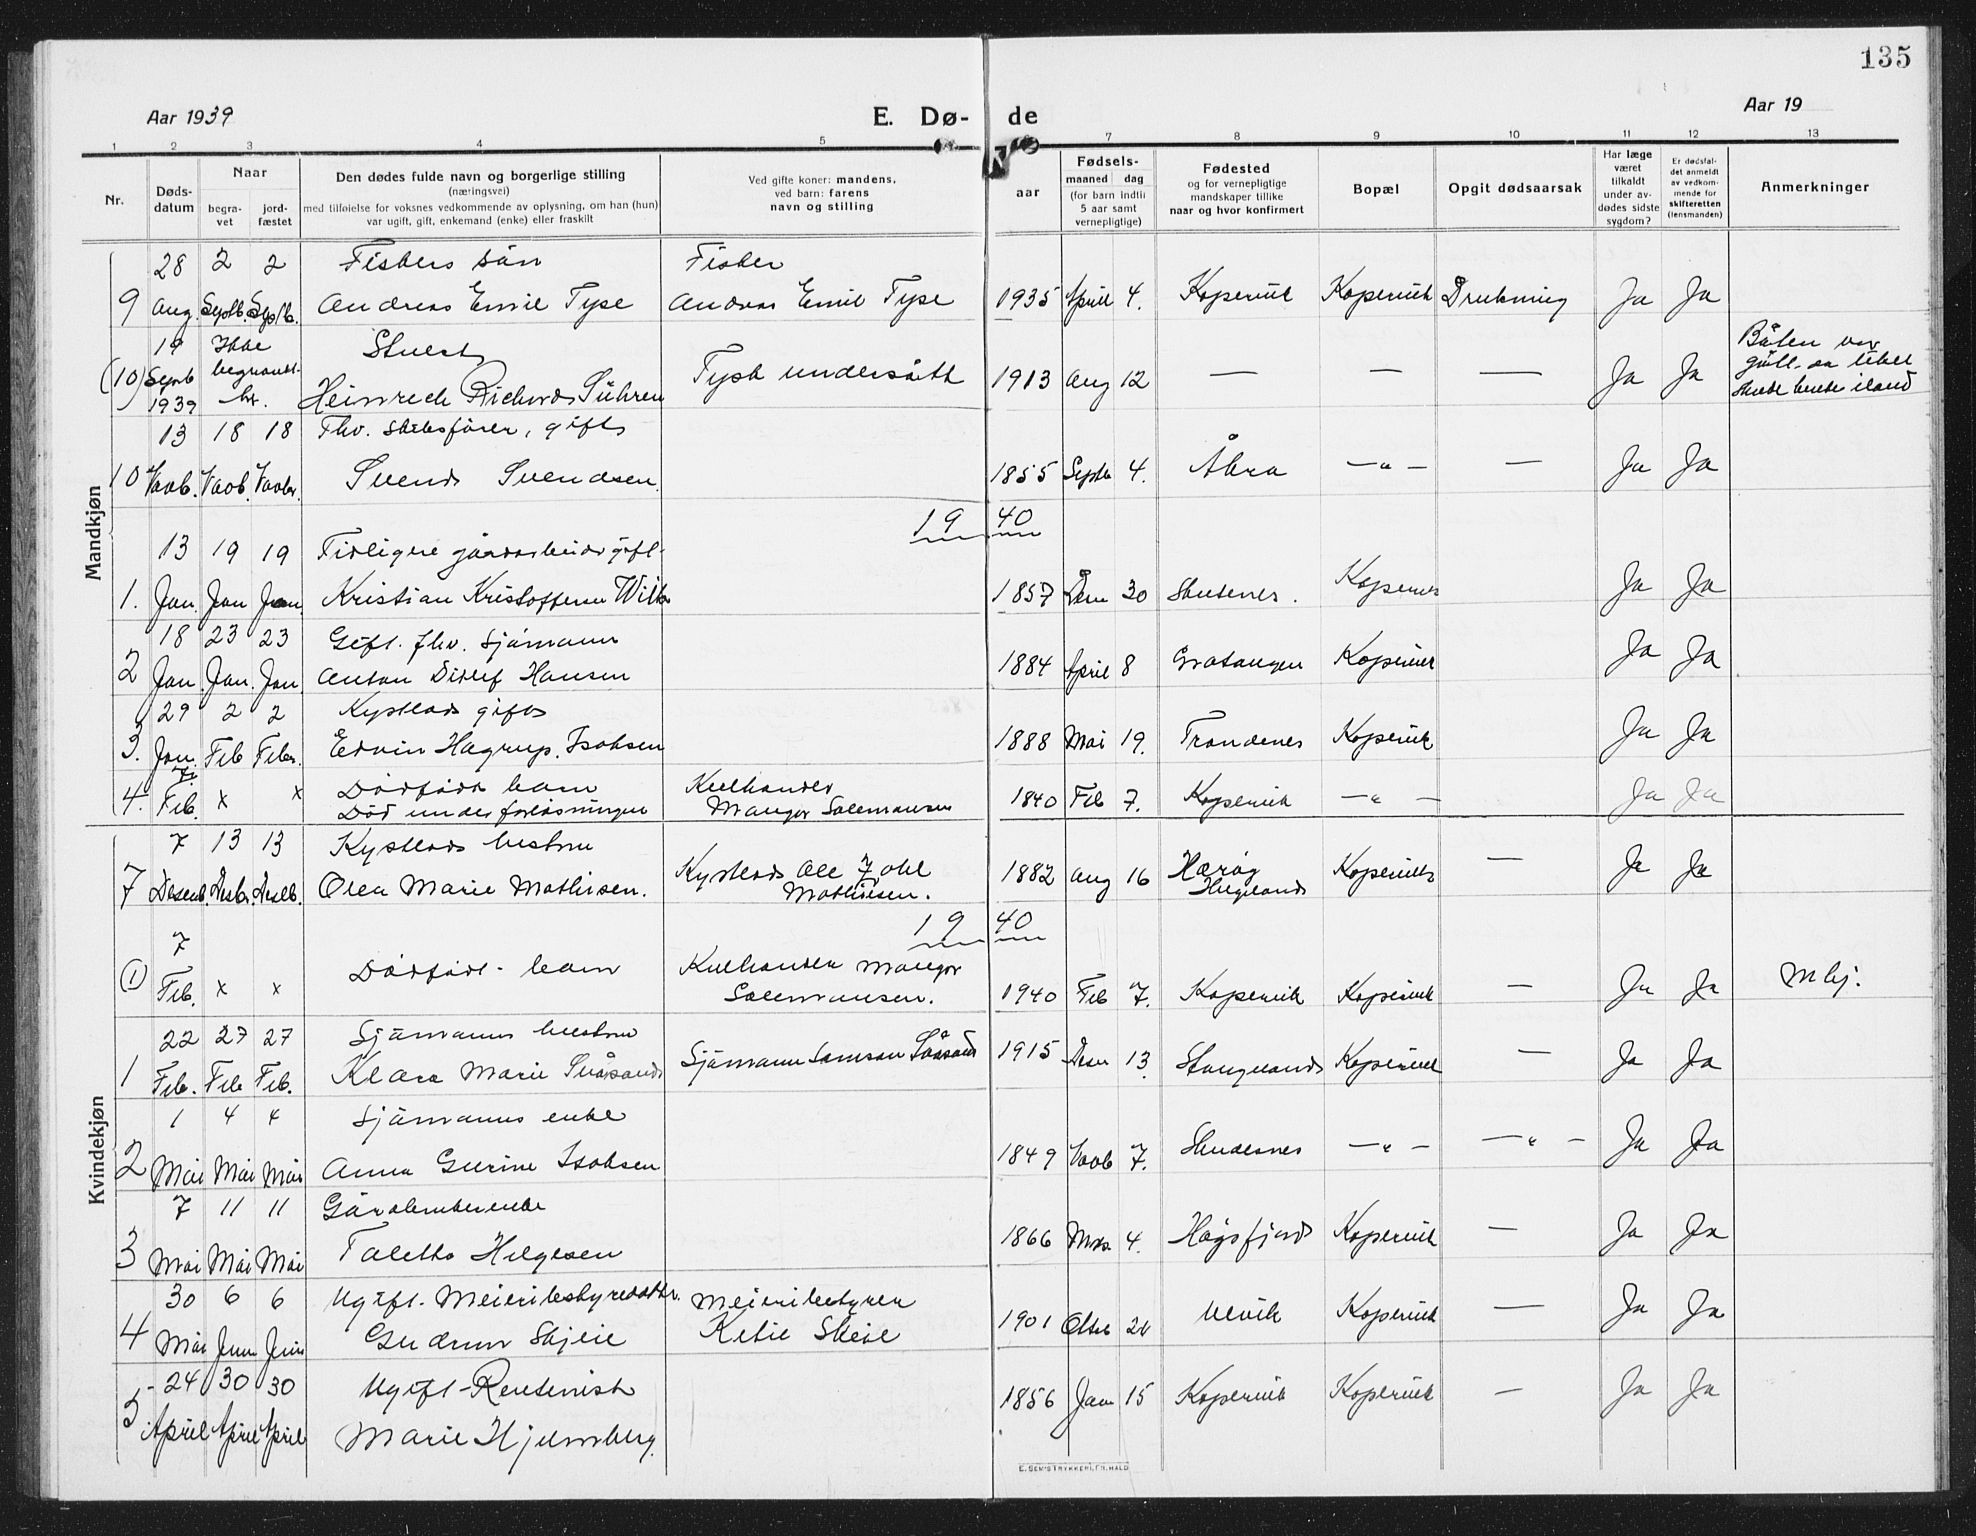 135
Aar 1939
E. Dø- de
Aar 19
1 2 3 4 5 7 8 9 10 11 12 13
Nr.
Døds-
datum
Naar
begra-
vet
jord-
fæstet
Den dødes fulde navn og borgerlige stilling
(næringsvei)
med tilføielse for voksnes vedkommende av oplysning, om han (hun)
var ugift, gift, enkemand (enke) eller fraskilt
Ved gifte koner: mandens,
ved barn: farens
navn og stilling
aar
Fødsels-
maaned dag
(for barn indtil
5 aar samt
vernepligtige)
Fødested
og for vernepligtige
mandskaper tillike
naar og hvor konfirmert
Bopæl
Opgit dødsaarsak
Har læge
været
tilkaldt
under av-
dødes sidste
sygdom?
Er dødsfal-
det anmeldt
av vedkom-
mende for
skifteretten
(lensmanden)
Anmerkninger
Mandkjøn
28 2 2 Fiskers sön Fisker
9 Aug. Septb. Septb. Andreas Emil Tyse Andreas Emil Tyse 1935 April 4. Kopervik Kopervik Drukning Ja Ja
19 Ikke
(10) Septb 1939 Heinrich Richard Sühren Tysk undersått 1913 Aug 12 — — — Ja Ja
Båten var
13 18 18 Fhv. skibsfører, gift
10 Novb. Novb. Novbr. Svend Svendsen. 1855 Septb 4. Åkra —"— — Ja Ja
19 40
13 19 19 Tidligere gårdarbeider gift.
1. Jan. Jan Jan Kristian Kristoffersen 1857 30 Skudenes. Ja Ja
18 23 23 Gift. fhv. sjömann
2 Jan. Jan. Jan Anton Ditlef Hansen 1884 April 8 Gratangen Kopervik Ja Ja
29 2 2 Kystlods gift
3. Jan. Feb Febr. Edvin Hagrup. Isaksen 1888 Mai 19. Trondenes Kopervik Ja Ja
7.
4. Feb. x x Dödfödt barn
Död under forløsningen
Mangor Salemonsen 1840 Feb 7. Kopervik —"— Ja Ja
Kvindekjøn
7 13 13 Kystlods hustru
7 Desemb. Desbr. Desb. Olea Marie Mathisen. Kystlods Ole
Mathisen. 1882 Aug 16 Kopervik — Ja Ja
19 40
7
(1) Feb. x x Dödfödt - barn Mangor
Salemonsen. 1940 Feb 7. Kopervik Kopervik — Ja Ja M kj.
22 27 27 Sjömanns hustru
1 Feb. Feb Feb. Klara Marie Sjömann Samson 1915 Desr 13. Stangeland Kopervik — Ja Ja
1 4 4 Sjömanns enke
2 Mai Mai Mai Anna Gurine Isaksen 1849 Novb 7. Skudesnes —"— —"— Ja Ja
7 11 11 Gårdbrukerenke
3 Mai Mai Mai Taletta Helgesen 1866 4. Høgsfjord Kopervik — Ja Ja
30 6 6 Ugift. Meieribestyrer
4 Mai Juni Juni Gudrun Skjeie Ketil Skeie 1901 Oktb Ulvik Kopervik — Ja Ja
24 30 30 Ugift - Rentenist
5 April April April Marie Hjelmberg. 1856 Jan 15 Kopervik Kopervik — Ja Ja
E. SEM'S TRYKKERI, FR. HALD